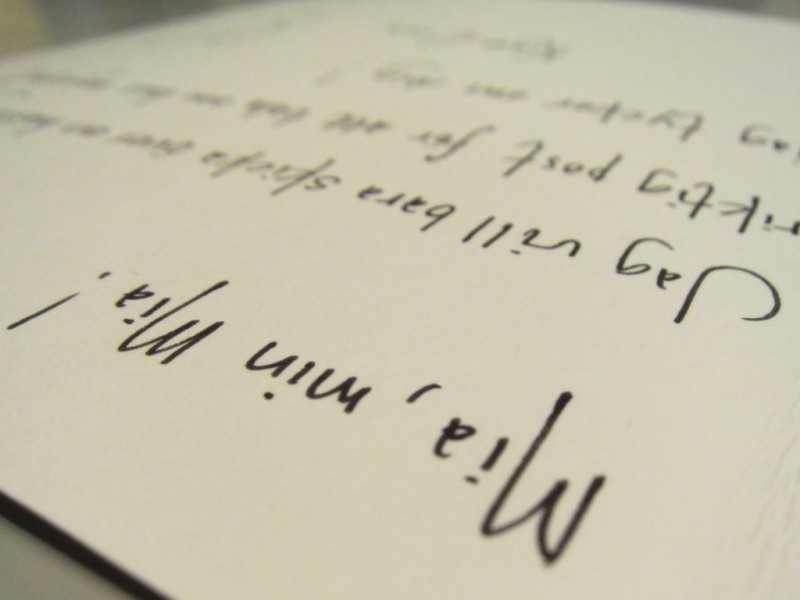 Mia, min Mia!
Jag vill bara skicka lite
riktig post för att tala om hur mycket
jag tycker om dig!